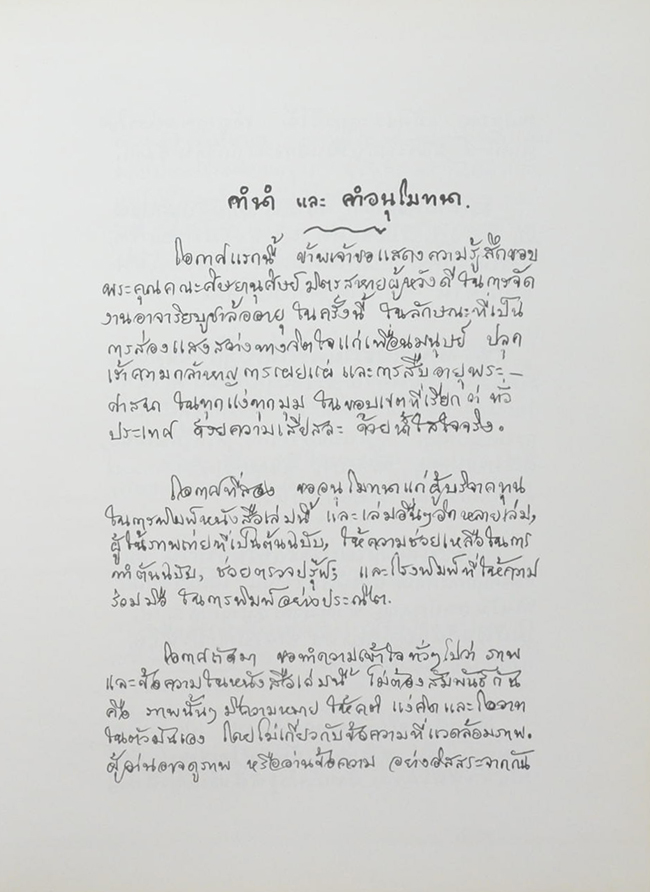 คำนำ และ คำอนุโมทนา.
โอกาสแรกนี้ ข้าพเจ้าขอแสดงความรู้สึกขอบ
พระคุณคณะศิษยานุศิษย์ มิตรสหายผู้หวังดี ในการจัด
งานอาจาริยบูชาล้ออายุ ในครั้งนี้ ในลักษณะที่เป็น
การส่องแสงสว่างทางจิตใจแก่เพื่อนมนุษย์ ปลุก
เร้าความกล้าหาญ การเผยแผ่ และการสืบอายุพระ–
ศาสนา ในทุกแง่ทุกมุม ในขอบเขตที่เรียกว่า ทั่ว
ประเทศ ด้วยความเสียสละ ด้วยน้ำใสใจจริง.
โอกาสที่สอง ขออนุโมทนาแก่ผู้บริจาคทุน
ในการพิมพ์หนังสือเล่มนี้ และเล่มอื่นๆอีกหลายเล่ม,
ผู้ให้ภาพถ่ายที่เป็นต้นฉบับ, ให้ความช่วยเหลือในการ
ทำต้นฉบับ, ช่วยตรวจปรู๊ฟ; และโรงพิมพ์ที่ให้ความ
ร่วมมือ ในการพิมพ์อย่างประณีต.
โอกาสถัดมา ขอทำความเข้าใจทั่วๆไปว่า ภาพ
และข้อความในหนังสือเล่มนี้ ไม่ต้องสัมพันธ์กัน
คือ ภาพนั้นๆ มีความหมาย ให้คติ แง่คิด และโอวาท
ในตัวมันเอง โดยไม่เกี่ยวกับข้อความที่แวดล้อมภาพ.
ผู้อ่านอาจดูภาพ หรืออ่านข้อความ อย่างอิสสระจากกัน